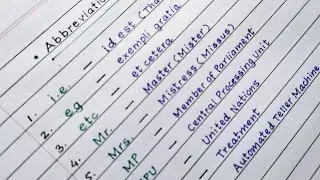 • Abbreviatio
1. i.e. – id est (Tha
2. e.g – exempli gratia
3. etc – et cetera
4. Mr. – Master (Mister)
5. Mrs. – Mistress (Missus)
MP – Member of Parliament
PU – Central Processing Unit
– United Nations
– Treatment
Automated Teller Machine